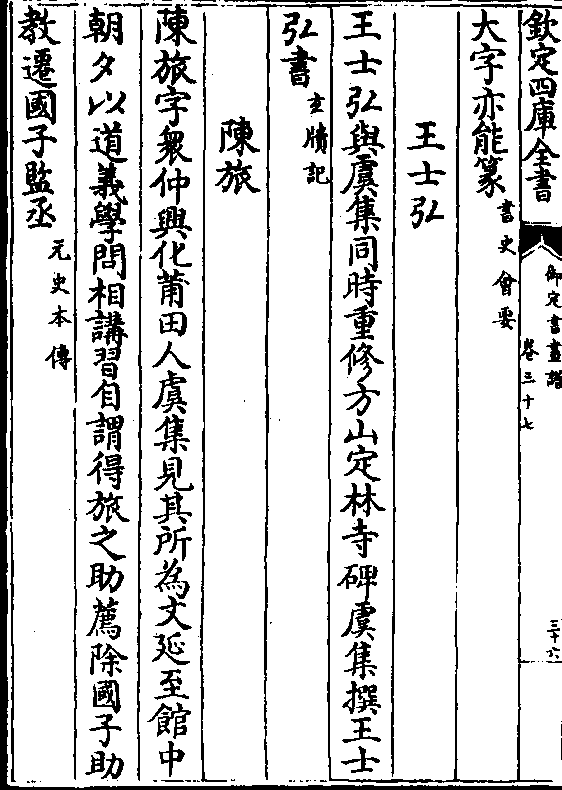 欽定四庫全書
御定書畫譜
卷三十七
三十六
大字亦能篆書史會要
王士弘
王士弘與虞集同時重修方山定林寺碑虞集撰王士
弘書玄牘記
陳旅
陳旅字衆仲興化莆田人虞集見其所為文延至館中
朝夕以道義學問相講習自謂得旅之助薦除國子助
教遷國子監丞元史本傳